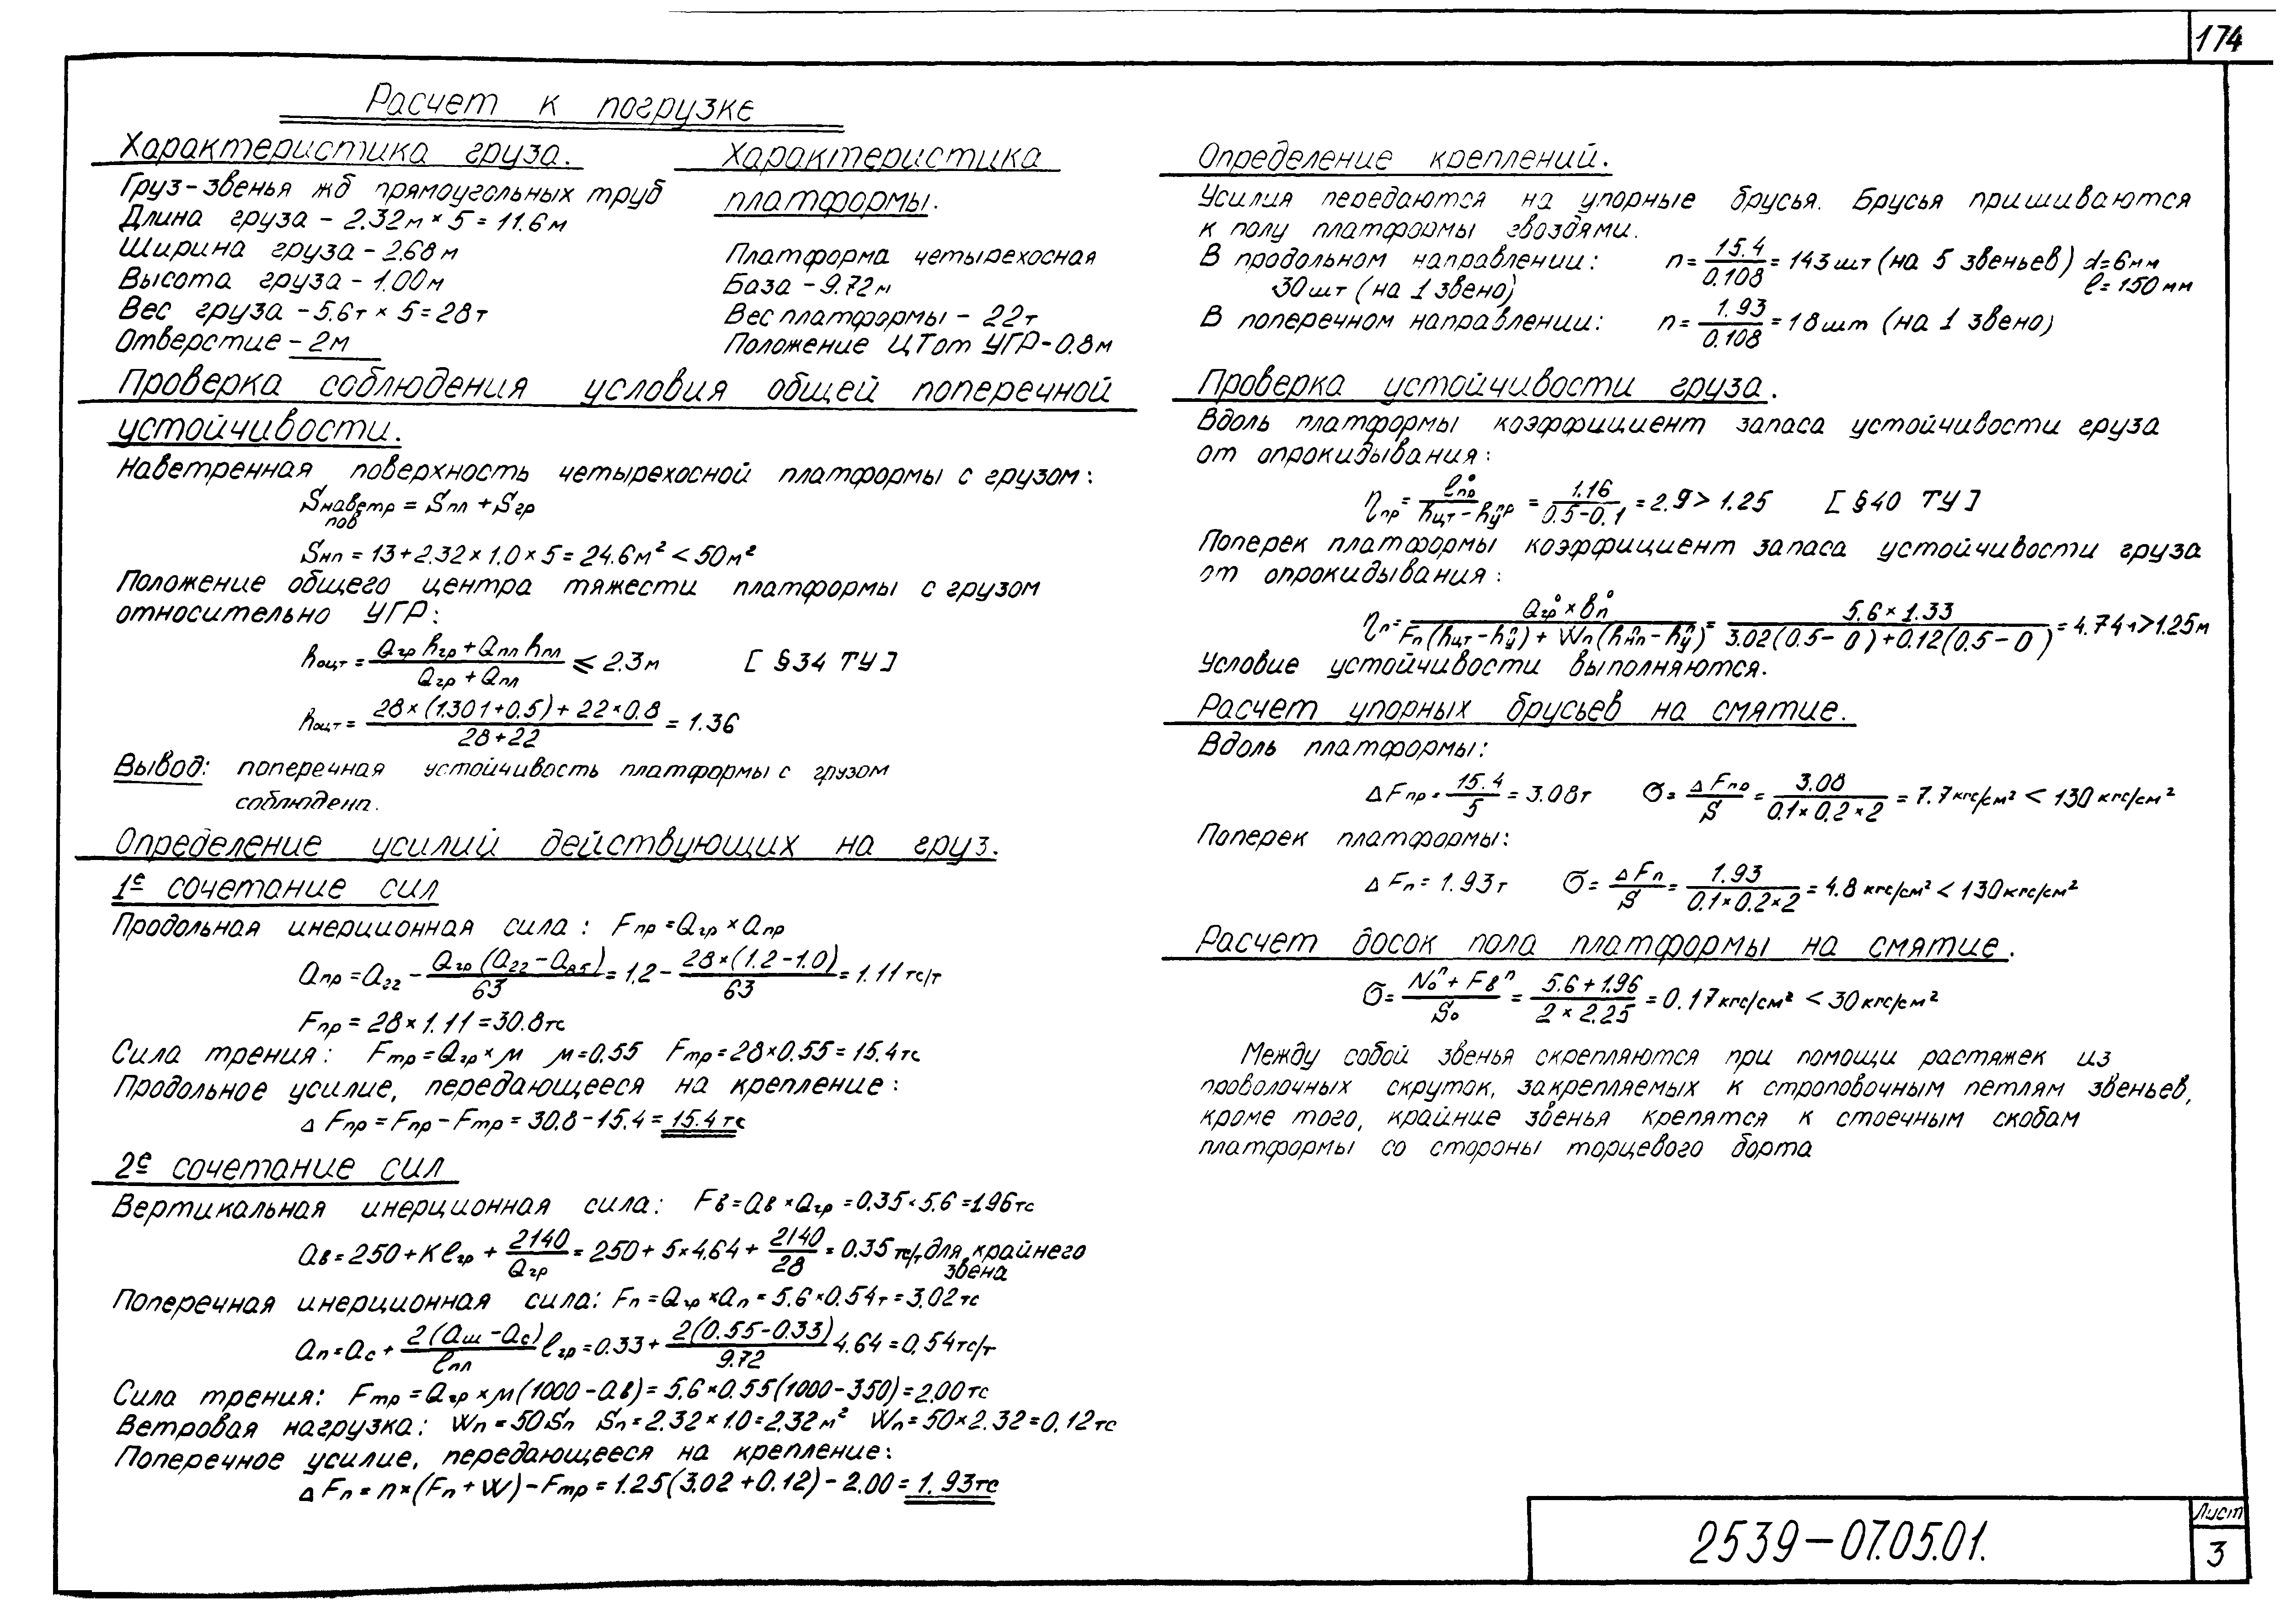 174
Расчет к погрузке
Характеристика груза.
Груз-звенья жб прямоугольных труб
Длина груза - 2.32м × 5 = 11.6м
Ширина груза - 2.68м
Высота груза - 1.00м
Вес груза - 5.6т × 5 = 28т
Отверстие - 2м
Характеристика
платформы.
Платформа четырехосная
База - 9.72м
Вес платформы - 22т
Положение ЦТ от УГР - 0.8м
Проверка соблюдения условия общей поперечной
устойчивости.
Наветренная поверхность четырехосной платформы с грузом:
Sнаветр пов = Sпл + Sгр
Sнп = 13 + 2.32 × 1.0 × 5 = 24.6м² < 50м²
Положение общего центра тяжести платформы с грузом
относительно УГР:
hоцт = (Qгр hгр + Qпл hпл) / (Qгр + Qпл) ⩽ 2.3м [ §34 ТУ ]
hоцт = (28 × (1.301 + 0.5) + 22 × 0.8) / (28 + 22) = 1.36
Вывод: поперечная устойчивость платформы с грузом
соблюдена.
Определение усилий действующих на груз.
1е сочетание сил
Продольная инерционная сила: Fпр = Qгр × aпр
aпр = a22 - Qгр (a22 - a85) / 63 = 1.2 - 28 × (1.2 - 1.0) / 63 = 1.11 тс/т
Fпр = 28 × 1.11 = 30.8тс
Сила трения: Fтр = Qгр × м м = 0.55 Fтр = 28 × 0.55 = 15.4тс
Продольное усилие, передающееся на крепление:
Δ Fпр = Fпр - Fтр = 30.8 - 15.4 = 15.4 тс
2е сочетание сил
Вертикальная инерционная сила: Fв = aв × Qгр = 0.35 × 5.6 = 1.96тс
aв = 250 + K lгр + 2140 / Qгр = 250 + 5 × 4.64 + 2140 / 28 = 0.35 тс/т для крайнего
звена
Поперечная инерционная сила: Fп = Qгр × aп = 5.6 × 0.54т = 3.02тс
aп = aс + 2(aш - aс) / lпл lгр = 0.33 + 2(0.55 - 0.33) / 9.72 4.64 = 0.54тс/т
Сила трения: Fтр = Qгр × м(1000 - aв) = 5.6 × 0.55(1000 - 350) = 2.00тс
Ветровая нагрузка: Wп = 50Sп Sп = 2.32 × 1.0 = 2.32м² Wп = 50 × 2.32 = 0.12тс
Поперечное усилие, передающееся на крепление:
Δ Fп = n × (Fп + W) - Fтр = 1.25(3.02 + 0.12) - 2.00 = 1.93тс
Определение креплений.
Усилия передаются на упорные брусья. Брусья пришиваются
к полу платформы гвоздями.
В продольном направлении: n = 15.4 / 0.108 = 143шт (на 5 звеньев) d=6мм
30шт (на 1 звено) l=150мм
В поперечном направлении: n = 1.93 / 0.108 = 18шт (на 1 звено)
Проверка устойчивости груза.
Вдоль платформы коэффициент запаса устойчивости груза
от опрокидывания:
ηпр = l°пр / (hцт - hу^пр) = 1.16 / (0.5 - 0.1) = 2.9 > 1.25 [ §40 ТУ ]
Поперек платформы коэффициент запаса устойчивости груза
от опрокидывания:
ηп = Q°гр × b°п / (Fп(hцт - hу^п) + Wп(hнп^п - hу^п)) = 5.6 × 1.33 / (3.02(0.5 - 0) + 0.12(0.5 - 0)) = 4.74 > 1.25м
Условие устойчивости выполняются.
Расчет упорных брусьев на смятие.
Вдоль платформы:
Δ Fпр = 15.4 / 5 = 3.08т σ = Δ Fпр / S = 3.08 / (0.1 × 0.2 × 2) = 7.7кгс/см² < 130кгс/см²
Поперек платформы:
Δ Fп = 1.93т σ = Δ Fп / S = 1.93 / (0.1 × 0.2 × 2) = 4.8 кгс/см² < 130кгс/см²
Расчет досок пола платформы на смятие.
σ = (Nо^п + Fв^п) / Sо = (5.6 + 1.96) / (2 × 2.25) = 0.17кгс/см² < 30кгс/см²
Между собой звенья скрепляются при помощи растяжек из
проволочных скруток, закрепляемых к строповочным петлям звеньев,
кроме того, крайние звенья крепятся к стоечным скобам
платформы со стороны торцевого борта
2539-07.05.01.
Лист
3